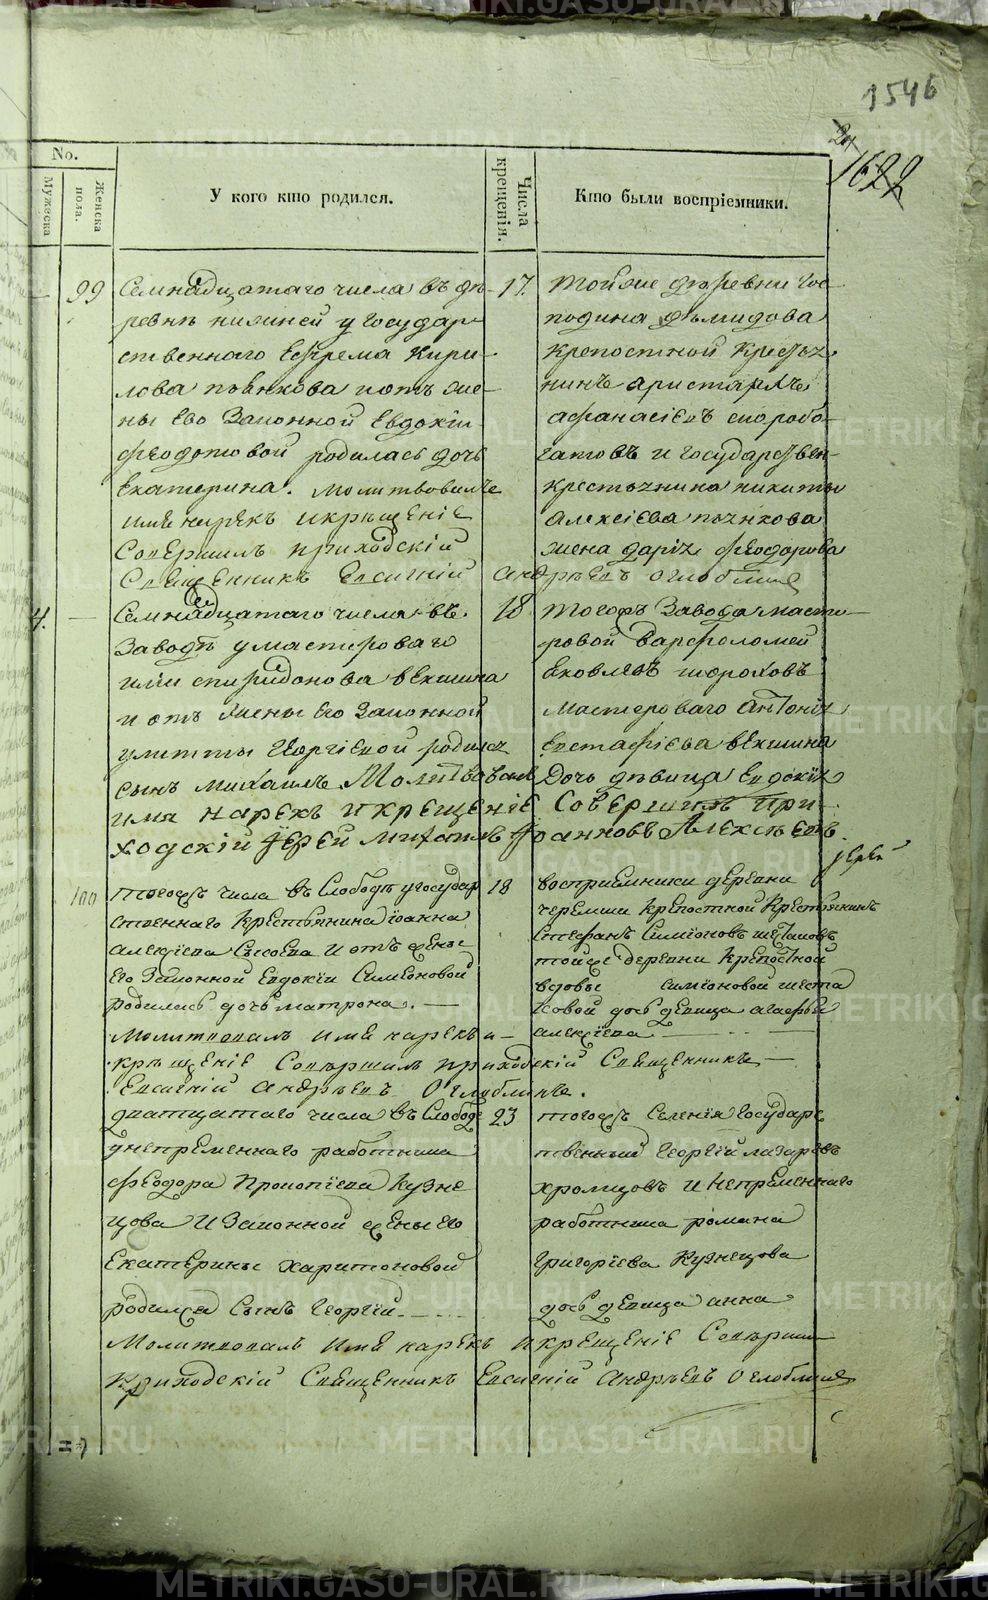 1546
24
1622
No.
Мужеска
Женска
пола.
У кого кто родился.
Числа
крещенія.
Кто были воспріемники.
99
Семнадцатаго числа въ де-
ревнѣ нижней у Государ-
ственнаго Ефрема Кири-
лова пьянкова и отъ же-
ны Его Законной Евдокіи
Ѳеодотовой родилась дочь
Екатерина. Молитвовалъ
имя нарекъ и крещеніе
Совершилъ приходскій
Священникъ Евсигній Андрѣевъ Оглоблинъ
17.
Той же деревни Гос-
подина Демидова
Крепостной Кресть
нинъ аристархъ
афанасіевъ скоробо-
гатовъ и Государствен-
крестьянина никиты
Алексіева
жена дарія Ѳеодорова
4.
Семнадцатаго числа въ
Заводѣ у мастероваго
иліи спиридонова векшина
и отъ жены Его Законной
улитты Георгіевой родился
сынъ михаилъ Молитвовалъ
имя нарекъ и крещеніе Совершилъ При
ходскій Іерей Михаилъ Іоанновъ Алексѣевъ.
18
Тогожъ Завода масте-
ровой Варфоломей
Яковлевъ шороховъ
Мастероваго Антонія
Евстафіева векшина
Дочь дѣвица Евдокія
Іерей
100
Тогожъ числа въ Слободѣ у государ
ственнаго Крестьянина іоанна
алексіева Сысоева и отъ жены
Его Законной Евдокіи Симеоновой
родилась дочь матрона. —
Молитвовалъ имя нарекъ и-
крещеніе Совершилъ приходскій Священникъ —
Евсигній Андрѣевъ Оглоблинъ.
18
воспріемники деревни
черемши Крепостной Крестьянинъ
Стефанъ Симіоновъ шестаковъ
тойже деревни Крепостной
вдовы Симіоновой шеста
ковой дочь девица агафья
алексіева
дватцатаго числа въ Слободе
у непременнаго работника
Ѳеодора Прокопіева Кузне
цова и Законной жены Его
Екатерины Харитоновой
родился Сынъ Георгій
Молитвовалъ Имя нарекъ и крещеніе Соверши
приходскій Священникъ Евсигній Андрѣевъ Оглоблинъ
23
тогожъ Селенія Государс
твенный Георгій лазаревъ
Хромцовъ и Непременнаго
работника романа
Григоріева Кузнецова
дочь девица анна
METRIKI.GASO-URAL.RU